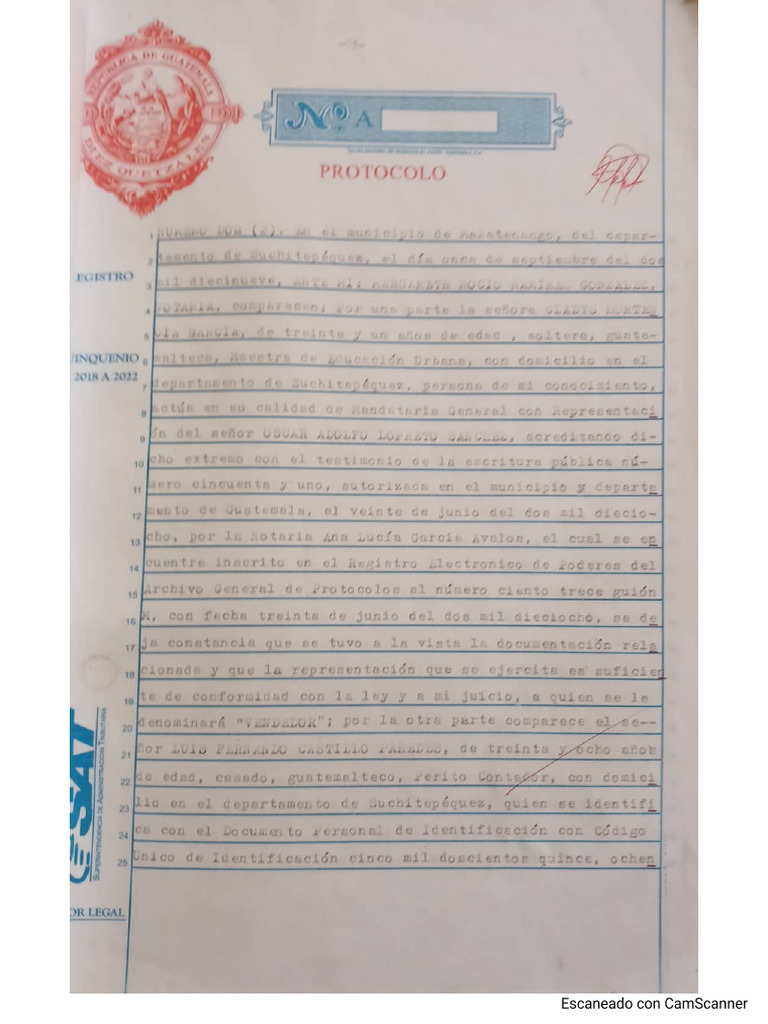 REPUBLICA DE GUATEMALA
DIEZ QUETZALES
Nº A
PROTOCOLO
EGISTRO
INQUENIO
2018 A 2022
SAT
SUPERINTENDENCIA DE ADMINISTRACION TRIBUTARIA
OR LEGAL
1 NUMERO DOS (2). En el municipio de Mazatenango, del depar-
2 tamento de Suchitepéquez, el día once de septiembre del dos
3 mil diecinueve, ANTE MI: MARGARETH ROCIO RAMIREZ GONZALEZ,
4 NOTARIA, comparecen; Por una parte la señora GLADYS HORTEN
5 CIA GARCIA, de treinta y un años de edad , soltera, guate-
6 malteca, Maestra de Educación Urbana, con domicilio en el
7 departamento de Suchitepéquez, persona de mi conocimiento,
8 actúa en su calidad de Mandataria General con Representaci
9 ón del señor OSCAR ADOLFO SANCHEZ, acreditando di-
10 cho extremo con el testimonio de la escritura pública nú-
11 mero cincuenta y uno, autorizada en el municipio y departa
12 mento de Guatemala, el veinte de junio del dos mil diecio-
13 cho, por la Notaria Ana Lucía Garcia Avalos, el cual se en
14 cuentra inscrito en el Registro Electronico de Poderes del
15 Archivo General de Protocolos al número ciento trece guión
16 con fecha treinta de junio del dos mil dieciocho, se de
17 ja constancia que se tuvo a la vista la documentación rela
18 cionada y que la representación que se ejercita es suficien
19 te de conformidad con la ley y a mi juicio, a quien se le
20 denominará "VENDEDOR"; por la otra parte comparece el se--
21 ñor LUIS FERNANDO CASTILLO PAREDES, de treinta y ocho años
22 de edad, casado, guatemalteco, Perito Contador, con domici
23 lio en el departamento de Suchitepéquez, quien se identifi
24 ca con el Documento Personal de Identificación con Código
25 Unico de Identificación cinco mil doscientos quince, ochen
Escaneado con CamScanner